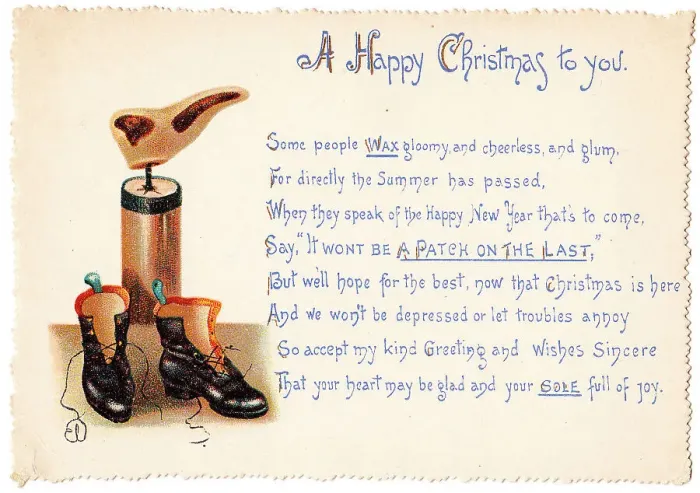 A Happy Christmas to you.
Some people WAX gloomy, and cheerless, and glum,
For directly the Summer has passed,
When they speak of the Happy New Year that's to come,
Say, "IT WONT BE A PATCH ON THE LAST,"
But we'll hope for the best, now that Christmas is here
And we won't be depressed or let troubles annoy
So accept my kind Greeting and Wishes Sincere
That your heart may be glad and your SOLE full of joy.